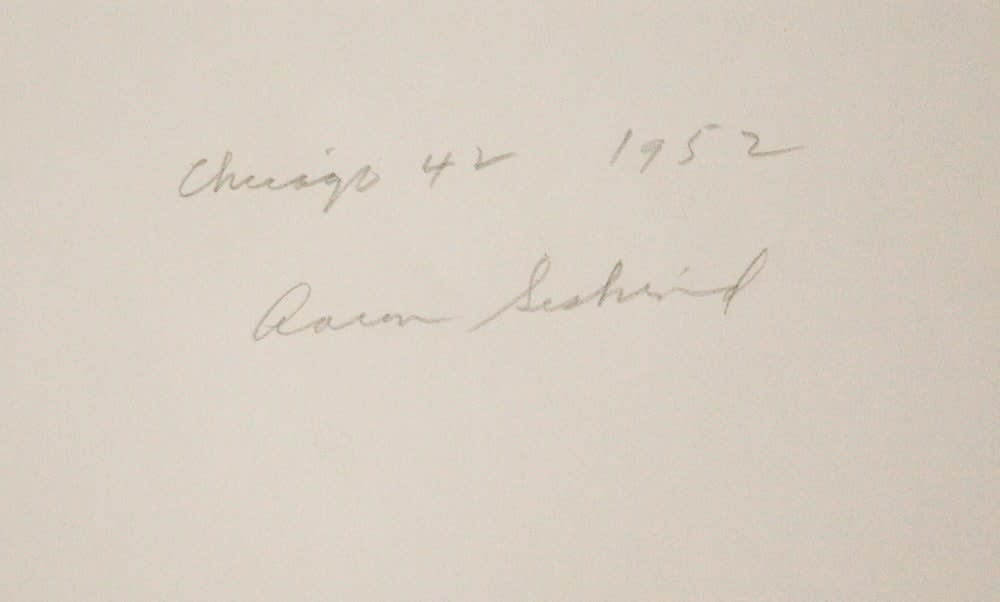 Chicago 42 1952
Aaron Siskind